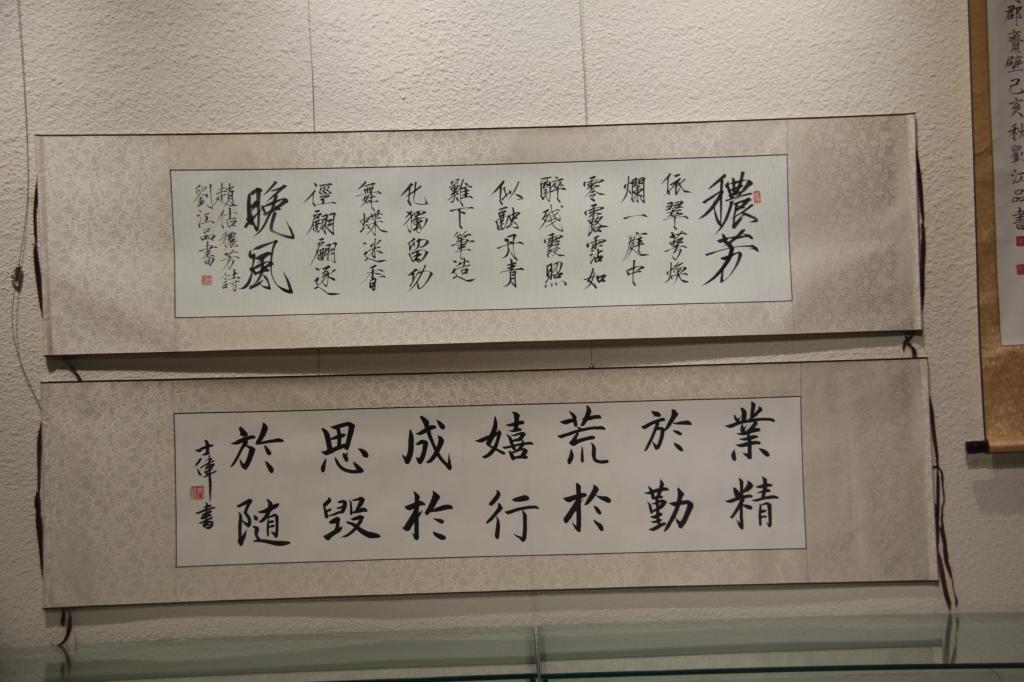 穠芳
依翠萼煥
爛一庭中
零露霑如
醉残霞照
似融丹青
難下筆造
化獨留功
舞蝶迷香
徑翩翩逐
晚風
趙佶穠芳詩
劉江品書
業精
於勤
荒於
嬉行
成於
思毀
於随
士偉書
郡齋壁己亥秋劉江品書